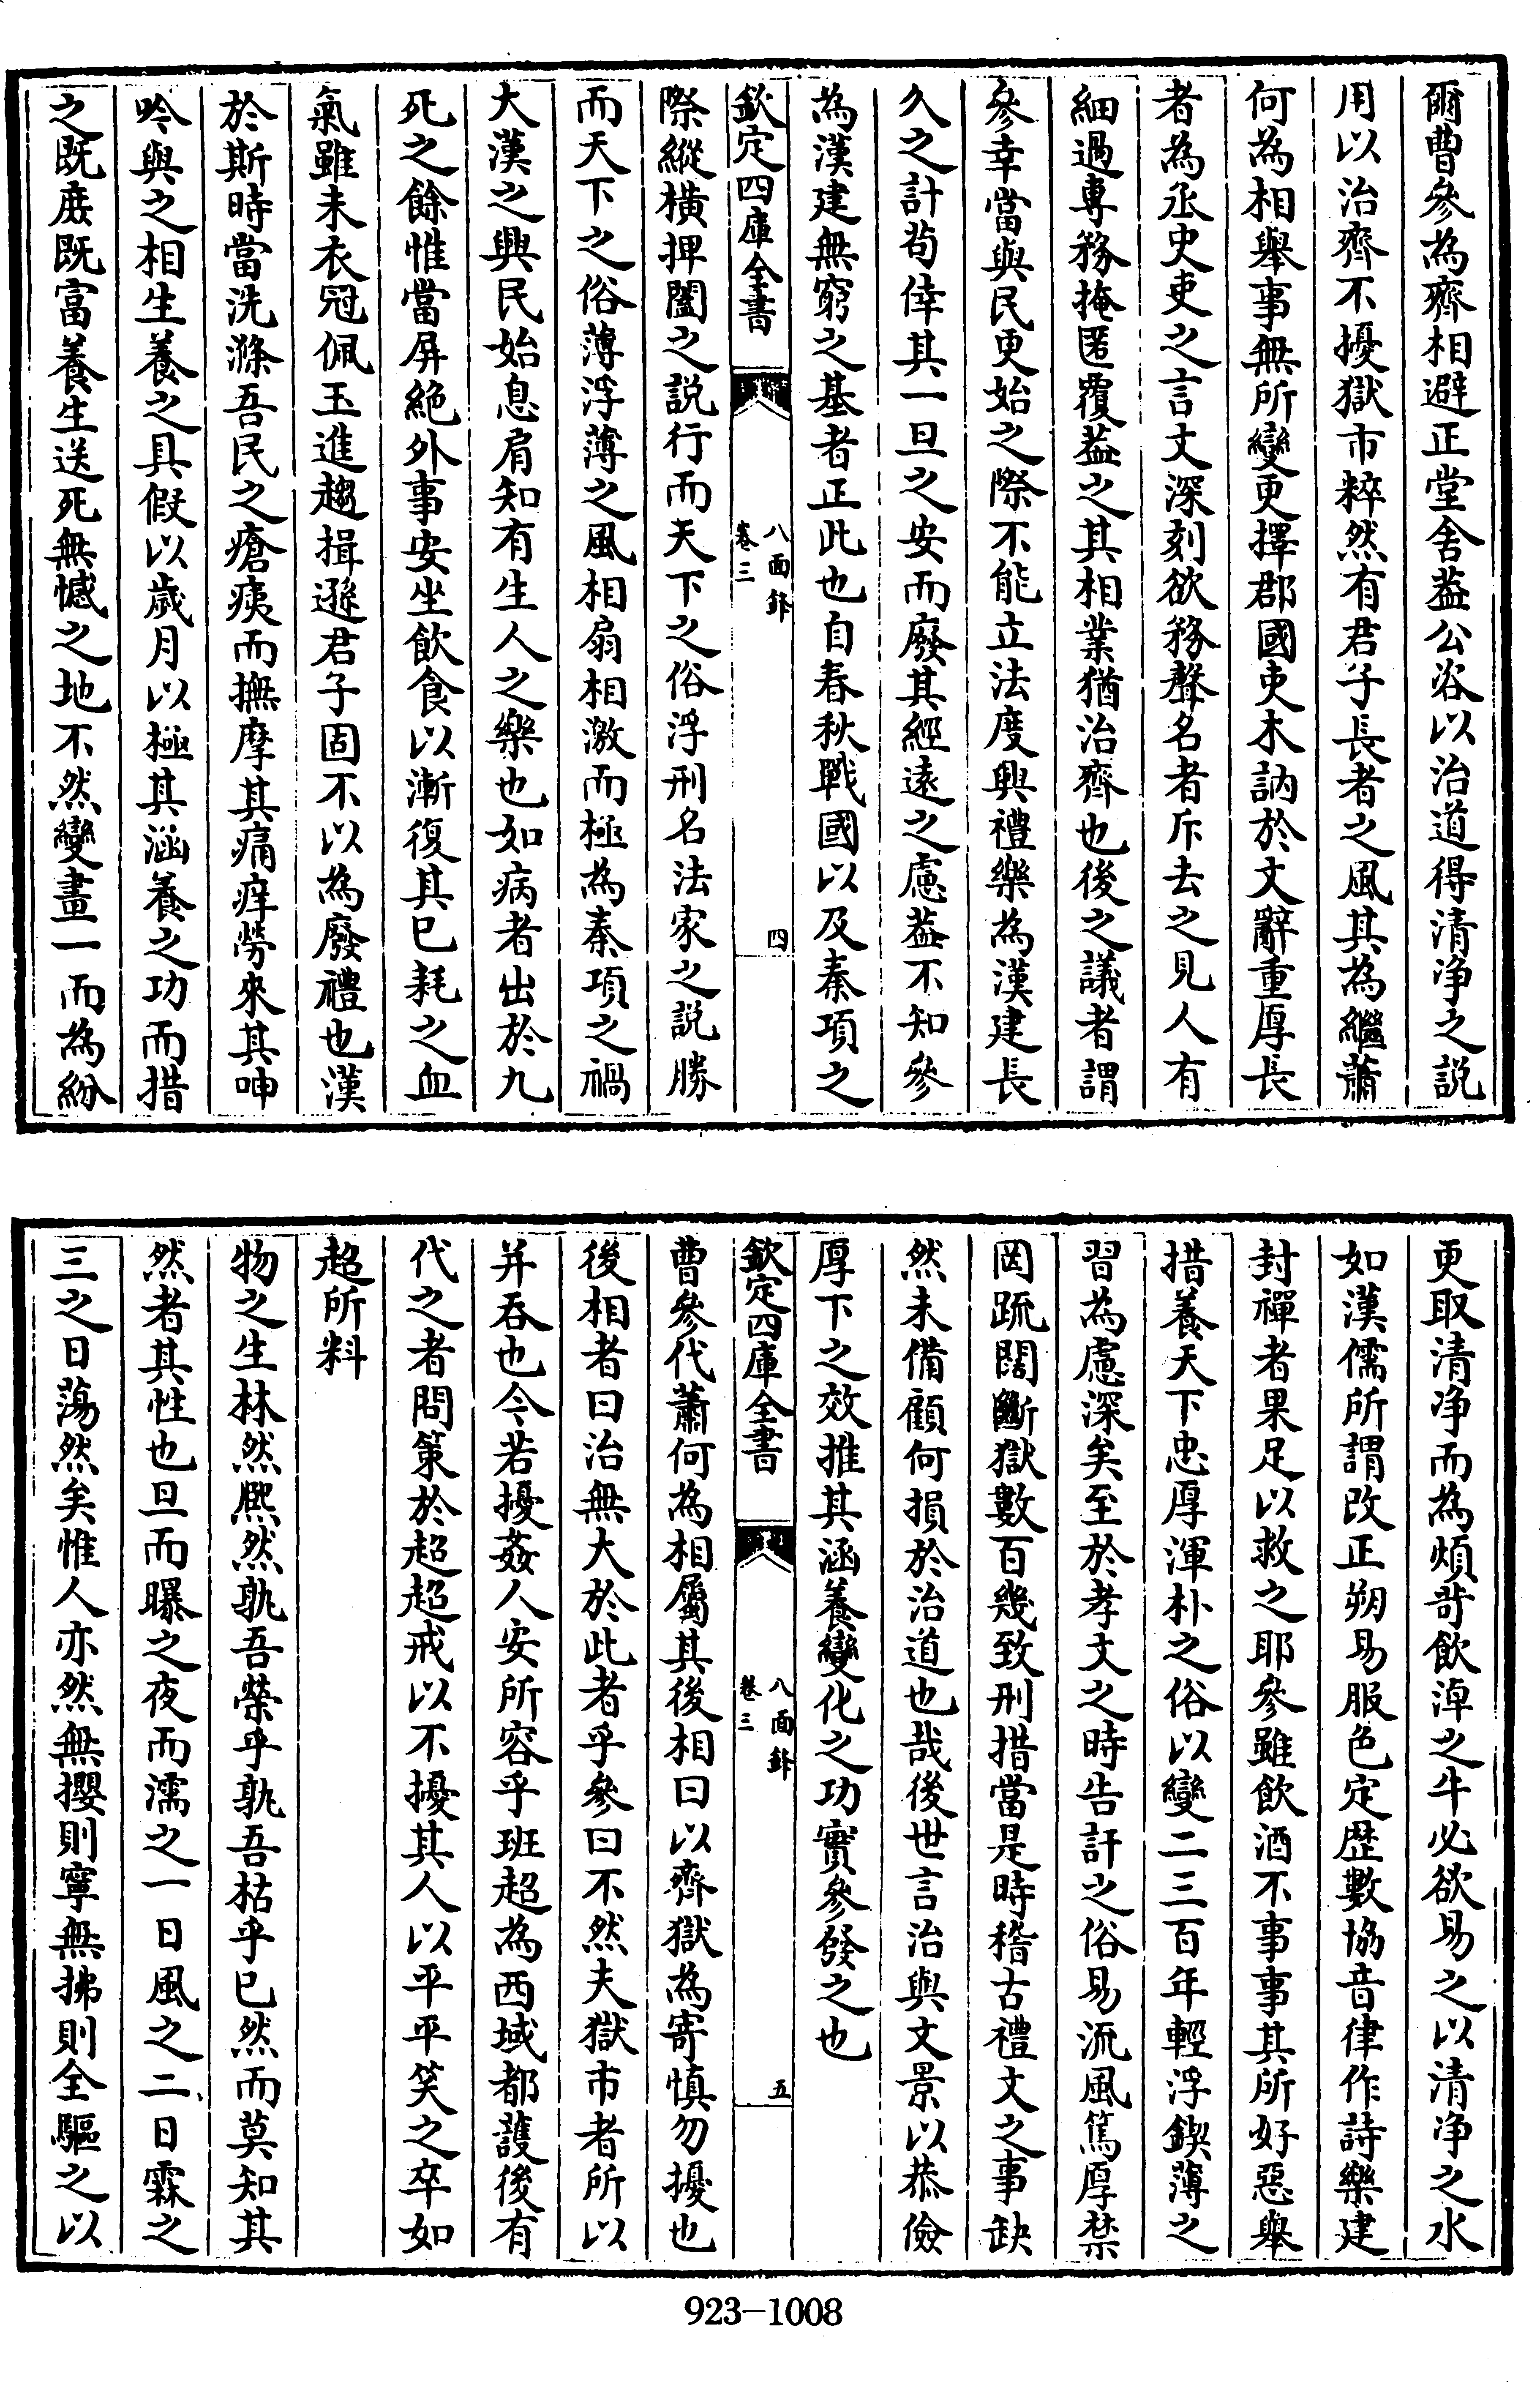 爾曹參為齊相避正堂舍葢公咨以治道得清净之説
用以治齊不擾獄市粹然有君子長者之風其為繼蕭
何為相舉事無所變更擇郡國吏木訥於文辭重厚長
者為丞史吏之言文深刻欲務聲名者斥去之見人有
細過専務掩匿覆葢之其相業猶治齊也後之議者謂
參幸當與民更始之際不能立法度興禮樂為漢建長
久之計茍倖其一旦之安而廢其經逺之慮葢不知參
為漢建無窮之基者正此也自春秋戰國以及秦項之
欽定四庫全書
八面鋒
卷三
四
際縱横捭闔之説行而天下之俗浮刑名法家之説勝
而天下之俗薄浮薄之風相扇相激而極為秦項之禍
大漢之興民始息肩知有生人之樂也如病者出於九
死之餘惟當屏絶外事安坐飲食以漸復其已耗之血
氣雖未衣冠佩玉進趨揖遜君子固不以為廢禮也漢
於斯時當洗滌吾民之瘡痍而撫摩其痛痒勞來其呻
吟與之相生養之具假以歲月以極其涵養之功而措
之既庻既富養生送死無憾之地不然變畫一而為紛
更取清净而為煩苛飲淖之牛必欲易之以清净之水
如漢儒所謂改正朔易服色定歴數協音律作詩樂建
封禪者果足以救之耶參雖飲酒不事事其所好惡舉
措養天下忠厚渾朴之俗以變二三百年輕浮鍥薄之
習為慮深矣至於孝文之時告訐之俗易流風篤厚禁
罔疏闊斷獄數百幾致刑措當是時稽古禮文之事缺
然未備顧何損於治道也哉後世言治與文景以恭儉
厚下之效推其涵養變化之功實參發之也
欽定四庫全書
八面鋒
卷三
五
曹參代蕭何為相屬其後相曰以齊獄為寄慎勿擾也
後相者曰治無大於此者乎參曰不然夫獄市者所以
并吞也今若擾姦人安所容乎班超為西域都護後有
代之者問策於超超戒以不擾其人以平平笑之卒如
超所料
物之生林然熈然孰吾榮乎孰吾枯乎已然而莫知其
然者其性也旦而曝之夜而濡之一日風之二日霖之
三之日蕩然矣惟人亦然無攖則寧無拂則全驅之以
923-1008